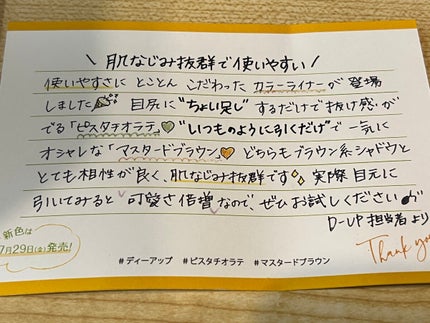 \ 肌なじみ抜群で使いやすい /
使いやすさに とことん こだわった カラーライナーが 登場
しました🎉 目尻に"ちょい足し"するだけで 抜け感が
でる「ピスタチオラテ」💚 "いつものように引くだけ"で一気に
オシャレな「マスタードブラウン」🧡 どちらもブラウン系シャドウと
とても相性が良く、肌なじみ抜群です✨ 実際 目元に
引いてみると 可愛さ倍増なので、ぜひお試しください♪
D-UP 担当者より
新色は
7月29日(金)発売!
Thank you
#ディーアップ #ピスタチオラテ #マスタードブラウン